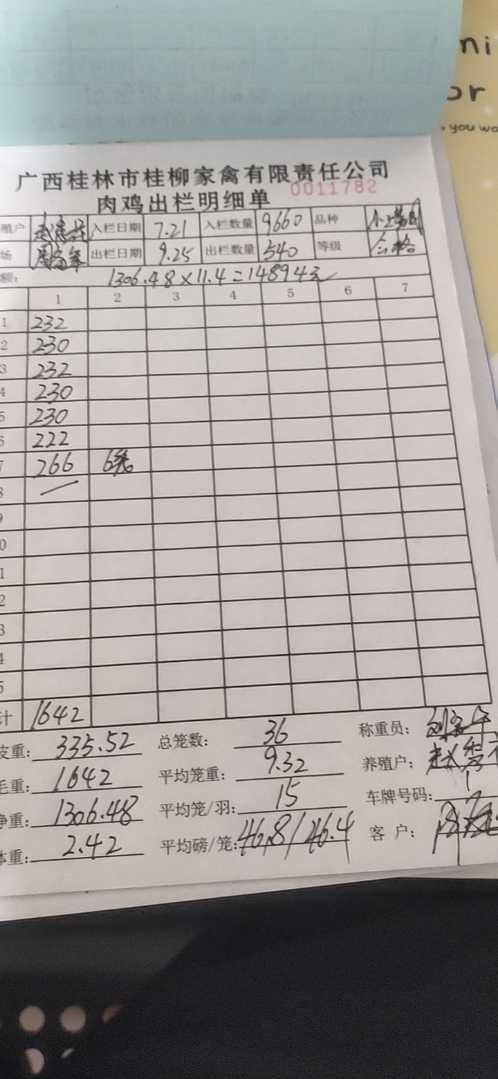 ni
or
, you wo
广西桂林市桂柳家禽有限责任公司
肉鸡出栏明细单 0011782
殖户 入栏日期 7.21 入栏数量 9660 品种
场 出栏日期 9.25 出栏数量 540 等级 合格
额: 1306.48×11.4=14894元
1 2 3 4 5 6 7
1 232
2 230
3 232
4 230
5 230
6 222
7 266 6只
8
9
0
1
2
3
4
5
计 1642
皮重: 335.52 总笼数: 36 称重员:
毛重: 1642 平均笼重: 9.32 养殖户:
净重: 1306.48 平均笼/羽: 15 车牌号码:
体重: 2.42 平均磅/笼: 46.8/46.4 客户: